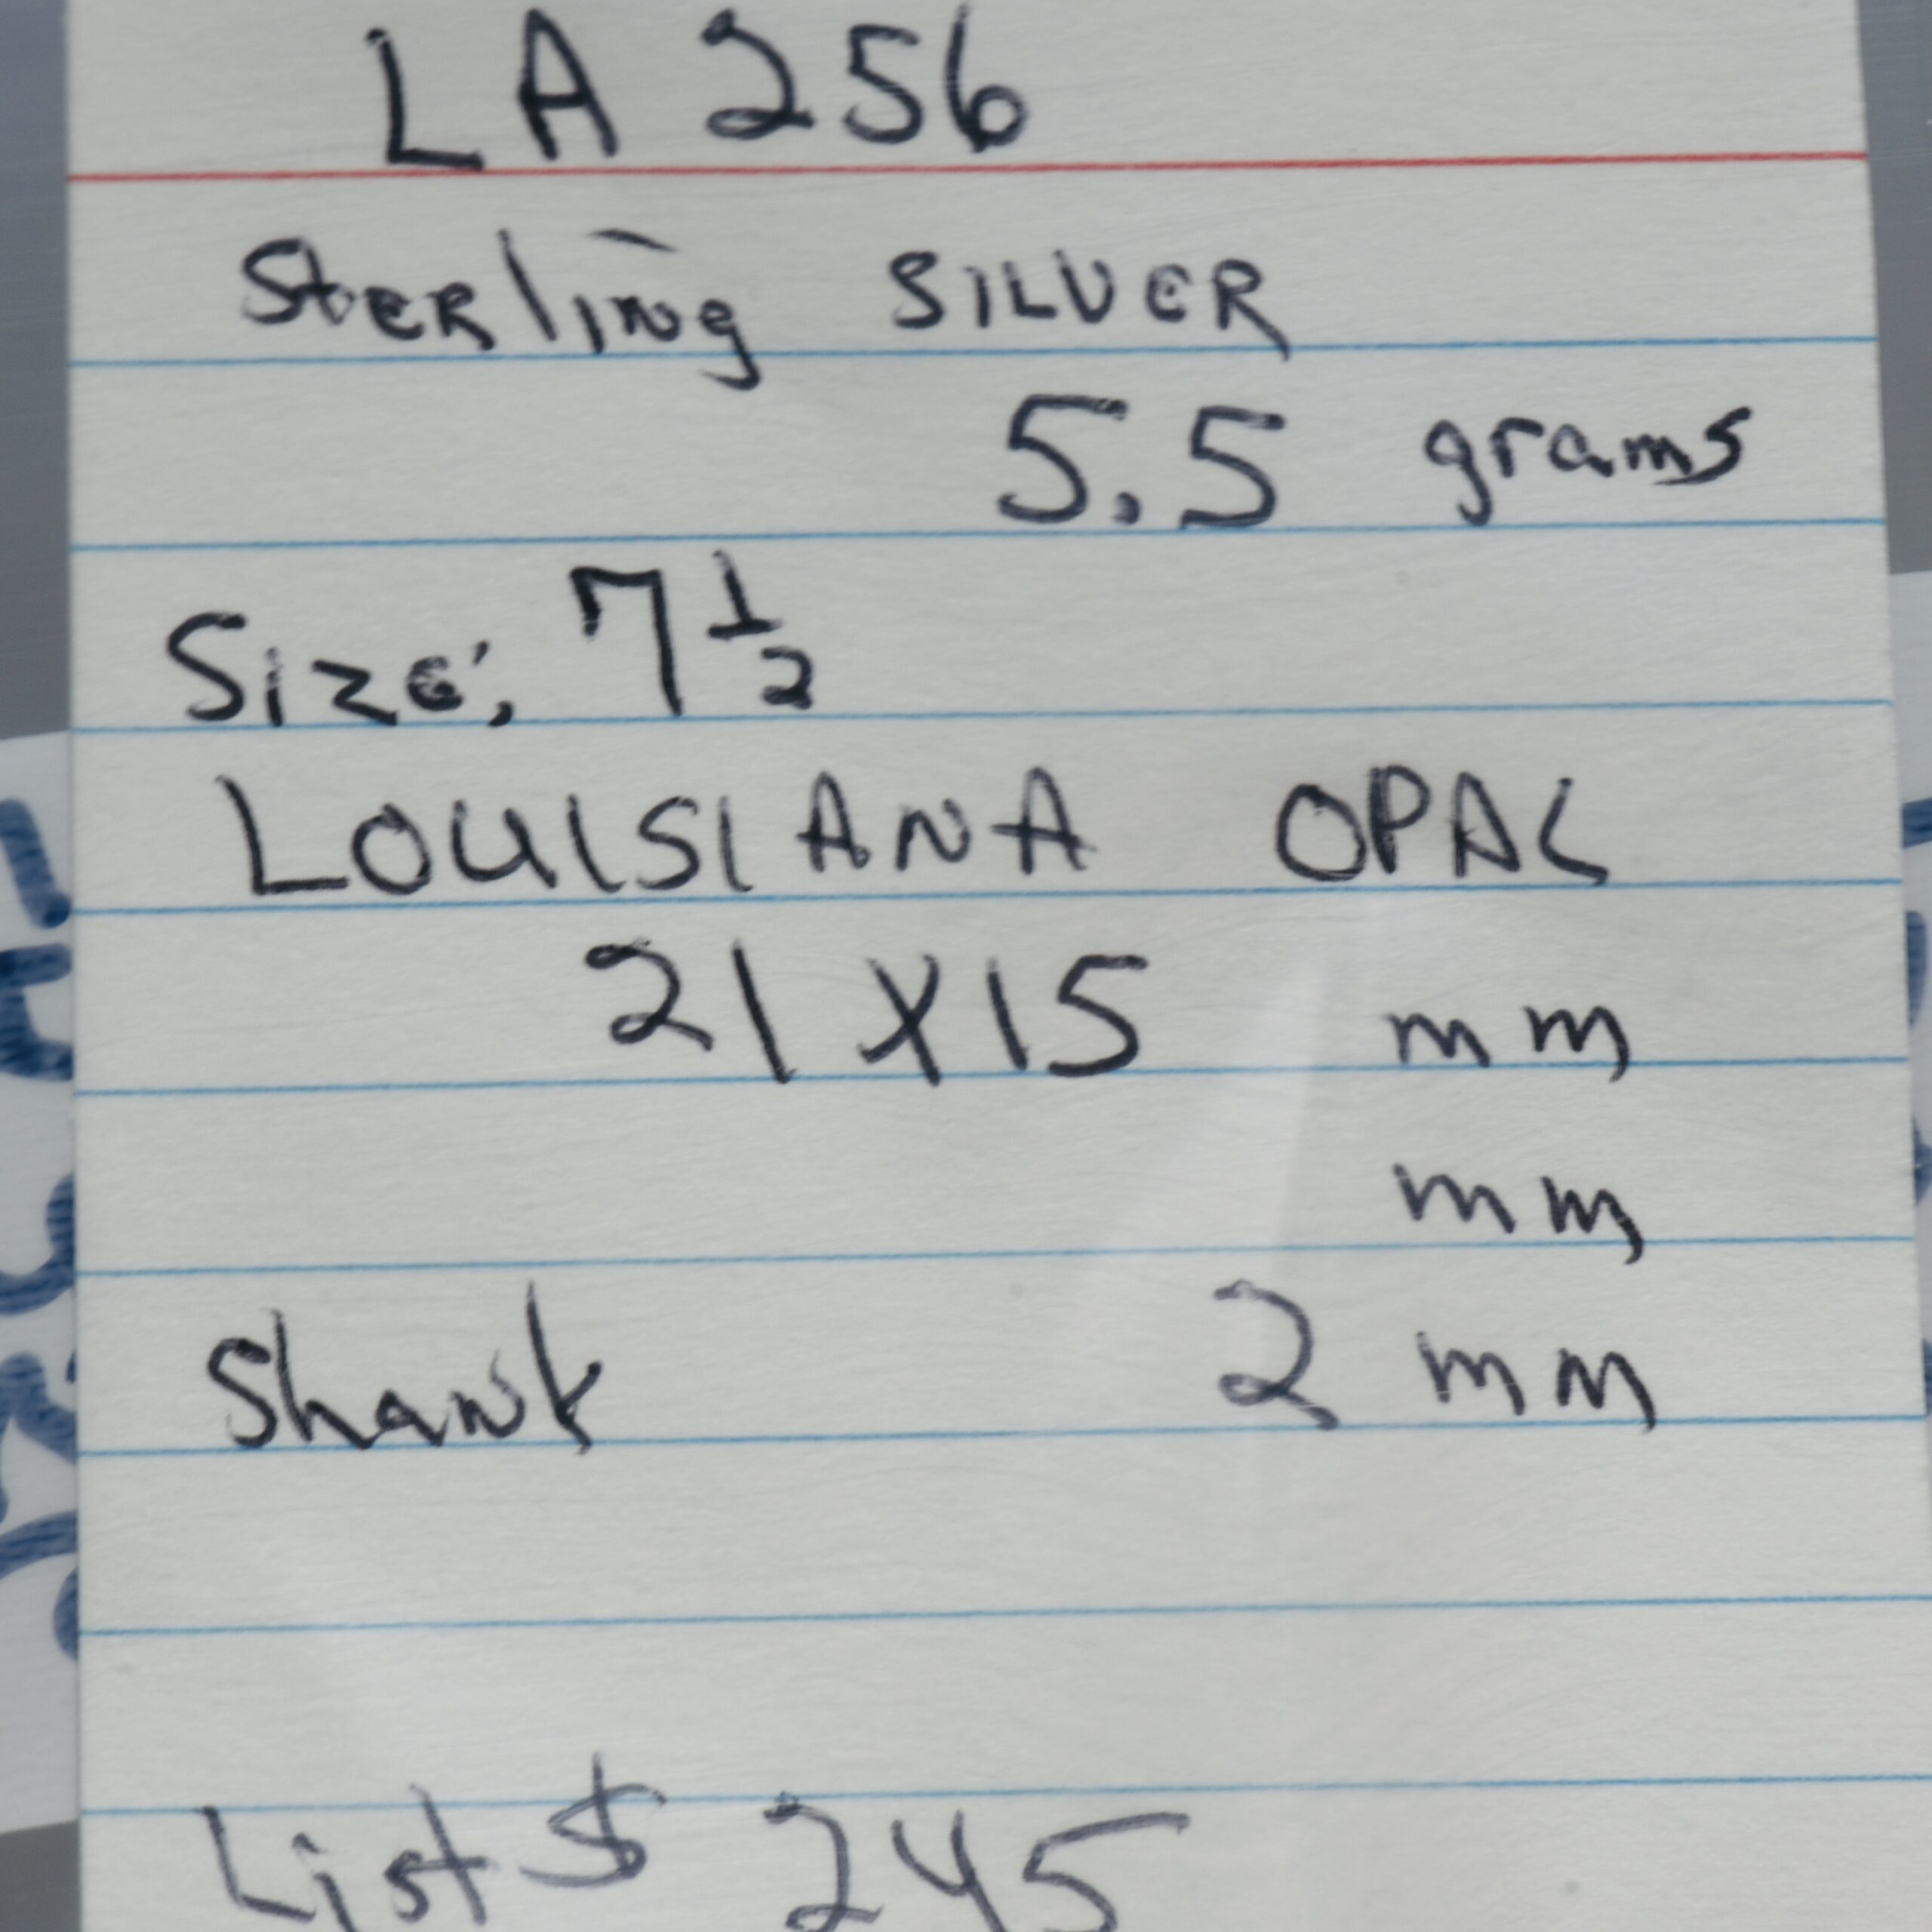 LA 256
Sterling SILVER
5.5 grams
Size: 7 1/2
LOUISIANA OPAL
21 X 15 mm
mm
Shank 2 mm
List $ 245